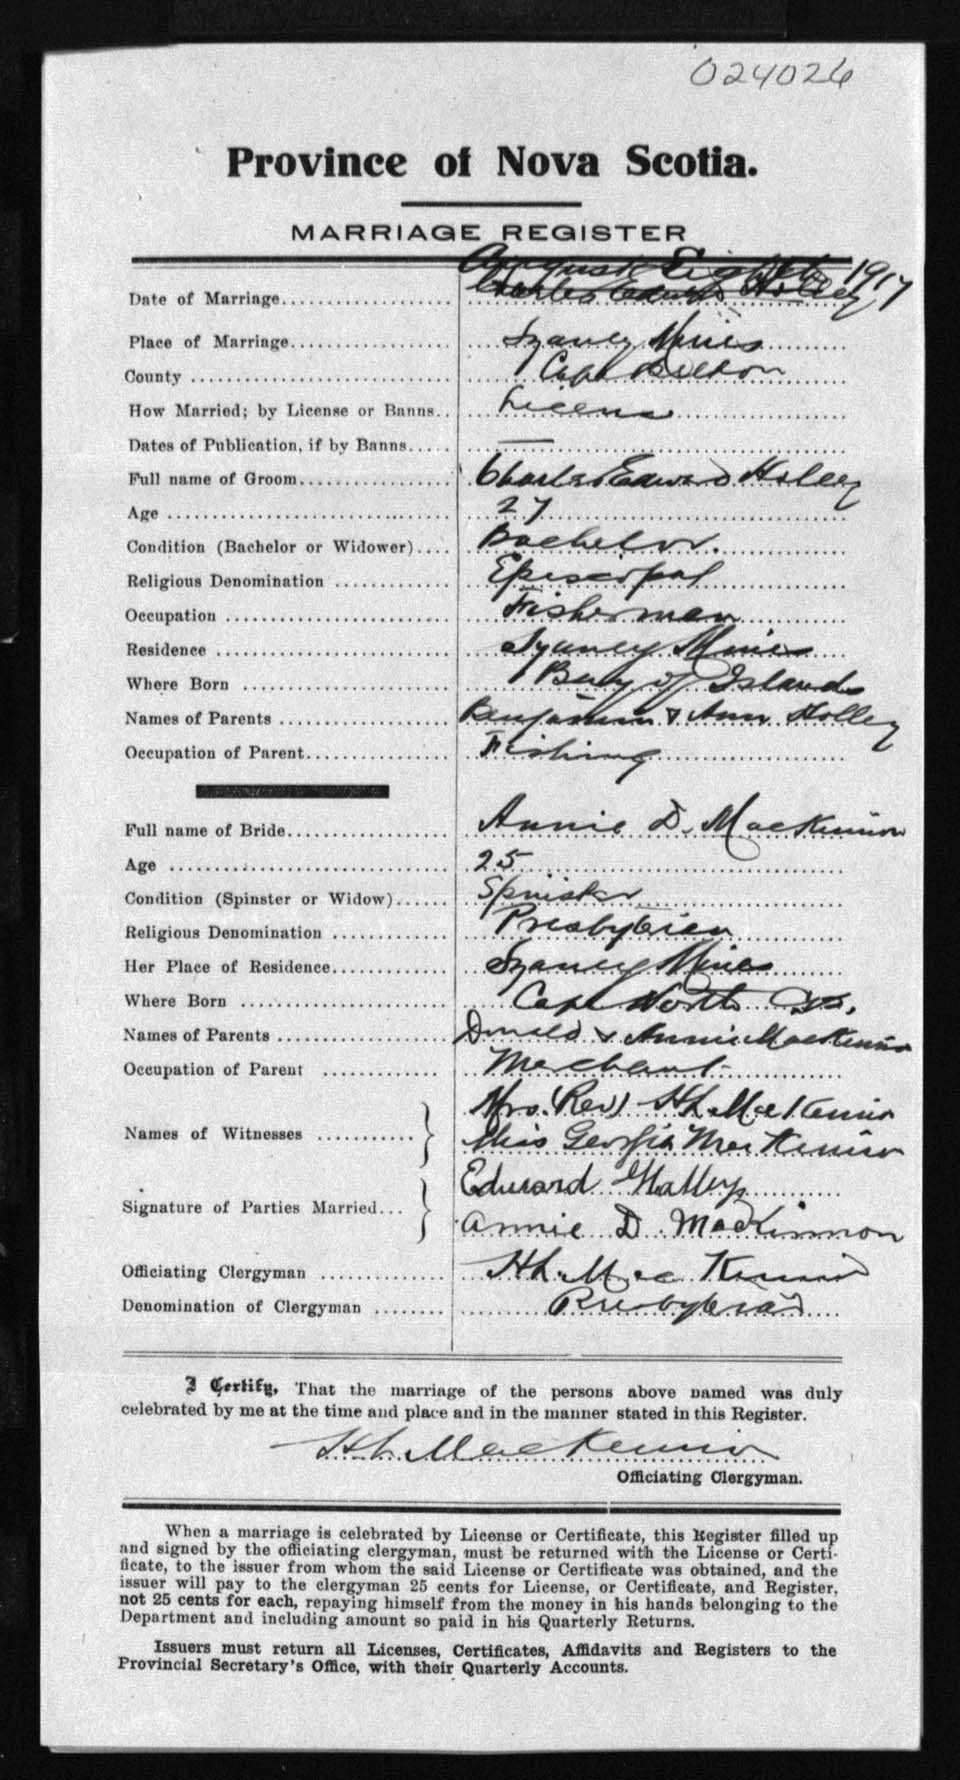 024026
Province of Nova Scotia.
MARRIAGE REGISTER
August Eighth 1917
Date of Marriage Charles Edward Holley
Place of Marriage Sydney Mines
County Cape Breton
How Married; by License or Banns License
Dates of Publication, if by Banns —
Full name of Groom Charles Edward Holley
Age 27
Condition (Bachelor or Widower) Bachelor.
Religious Denomination Episcopal
Occupation Fisherman
Residence Sydney Mines
Where Born Bay of Islands
Names of Parents Benjamin & Ann Holley
Occupation of Parent Fishing
Full name of Bride Annie D. MacKinnon
Age 25
Condition (Spinster or Widow) Spinster
Religious Denomination Presbyterian
Her Place of Residence Sydney Mines
Where Born Cape North
Names of Parents Donald & Annie MacKinnon
Occupation of Parent Merchant
Mrs. (Rev) MacKinnon
Names of Witnesses Miss Georgia MacKinnon
Edward
Signature of Parties Married
Annie D MacKinnon
Officiating Clergyman MacKinnon
Denomination of Clergyman Presbyterian
I Certify, That the marriage of the persons above named was duly
celebrated by me at the time and place and in the manner stated in this Register.
MacKinnon
Officiating Clergyman.
When a marriage is celebrated by License or Certificate, this Register filled up
and signed by the officiating clergyman, must be returned with the License or Certi-
ficate, to the issuer from whom the said License or Certificate was obtained, and the
issuer will pay to the clergyman 25 cents for License, or Certificate, and Register,
not 25 cents for each, repaying himself from the money in his hands belonging to the
Department and including amount so paid in his Quarterly Returns.
Issuers must return all Licenses, Certificates, Affidavits and Registers to the
Provincial Secretary's Office, with their Quarterly Accounts.